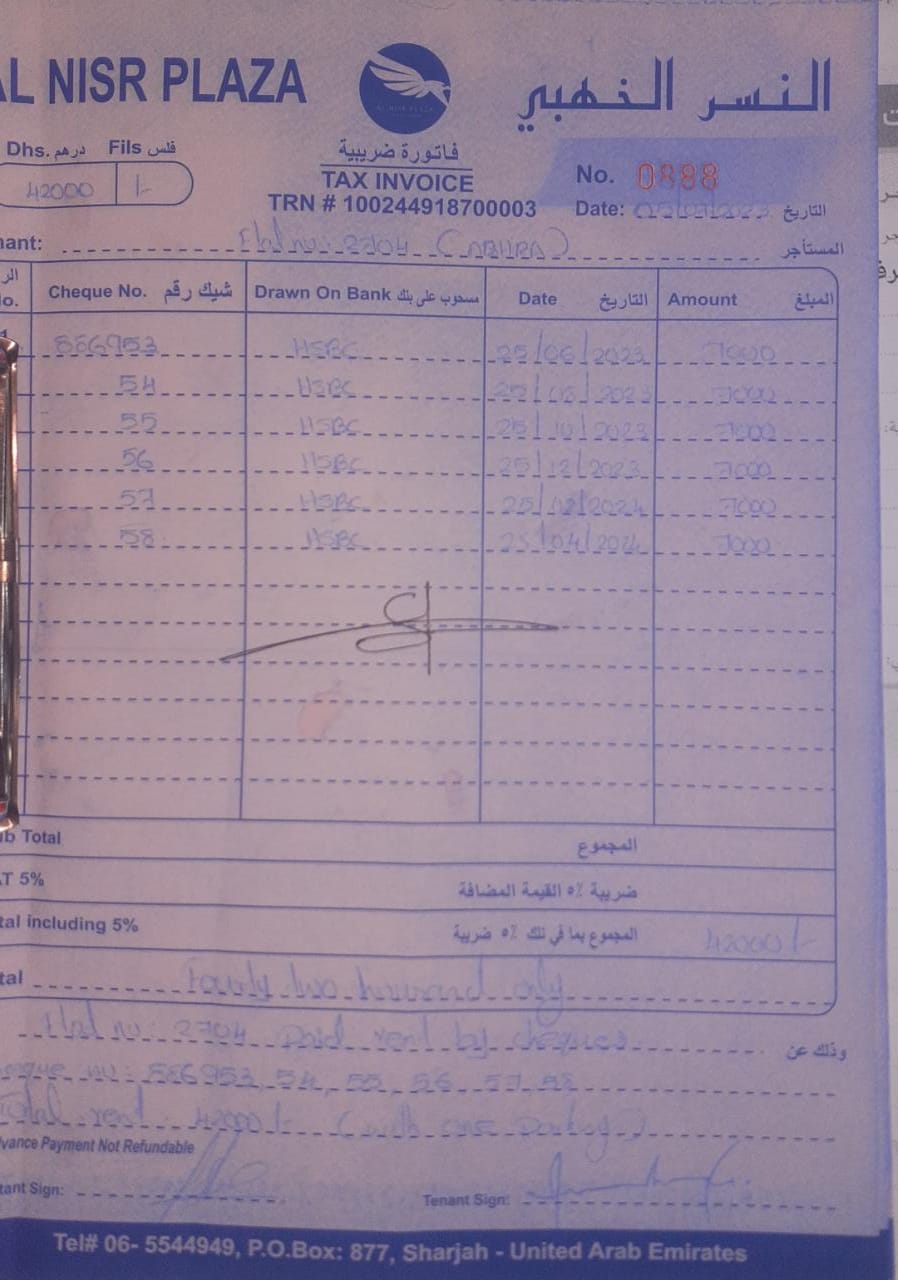 AL NISR PLAZA
النسر الذهبي
Dhs. درهم Fils فلس
42000 /-
فاتورة ضريبية
TAX INVOICE
TRN # 100244918700003
No. 0888
Date: 2023 التاريخ
nant: Flat no: 2704 المستأجر
الر
No. Cheque No. شيك رقم Drawn On Bank مسحوب على بنك Date التاريخ Amount المبلغ
586953 HSBC 25/06/2023 7000
54 HSBC 25/08/2023 7000
55 HSBC 25/10/2023 7000
56 HSBC 25/12/2023 7000
57 HSBC 25/02/2024 7000
58 HSBC 25/04/2024 7000
ub Total المجموع
AT 5% ضريبة ٥٪ القيمة المضافة
tal including 5% المجموع بما في ذلك ٥٪ ضريبة 42000/-
tal Fourty two thousand only
Flat no: 2704 Paid rent by cheques وذلك عن
cheque no: 586953, 54, 55, 56, 57, 58
Total rent 42000/- (with one Parking)
vance Payment Not Refundable
tant Sign: Tenant Sign:
Tel# 06- 5544949, P.O.Box: 877, Sharjah - United Arab Emirates